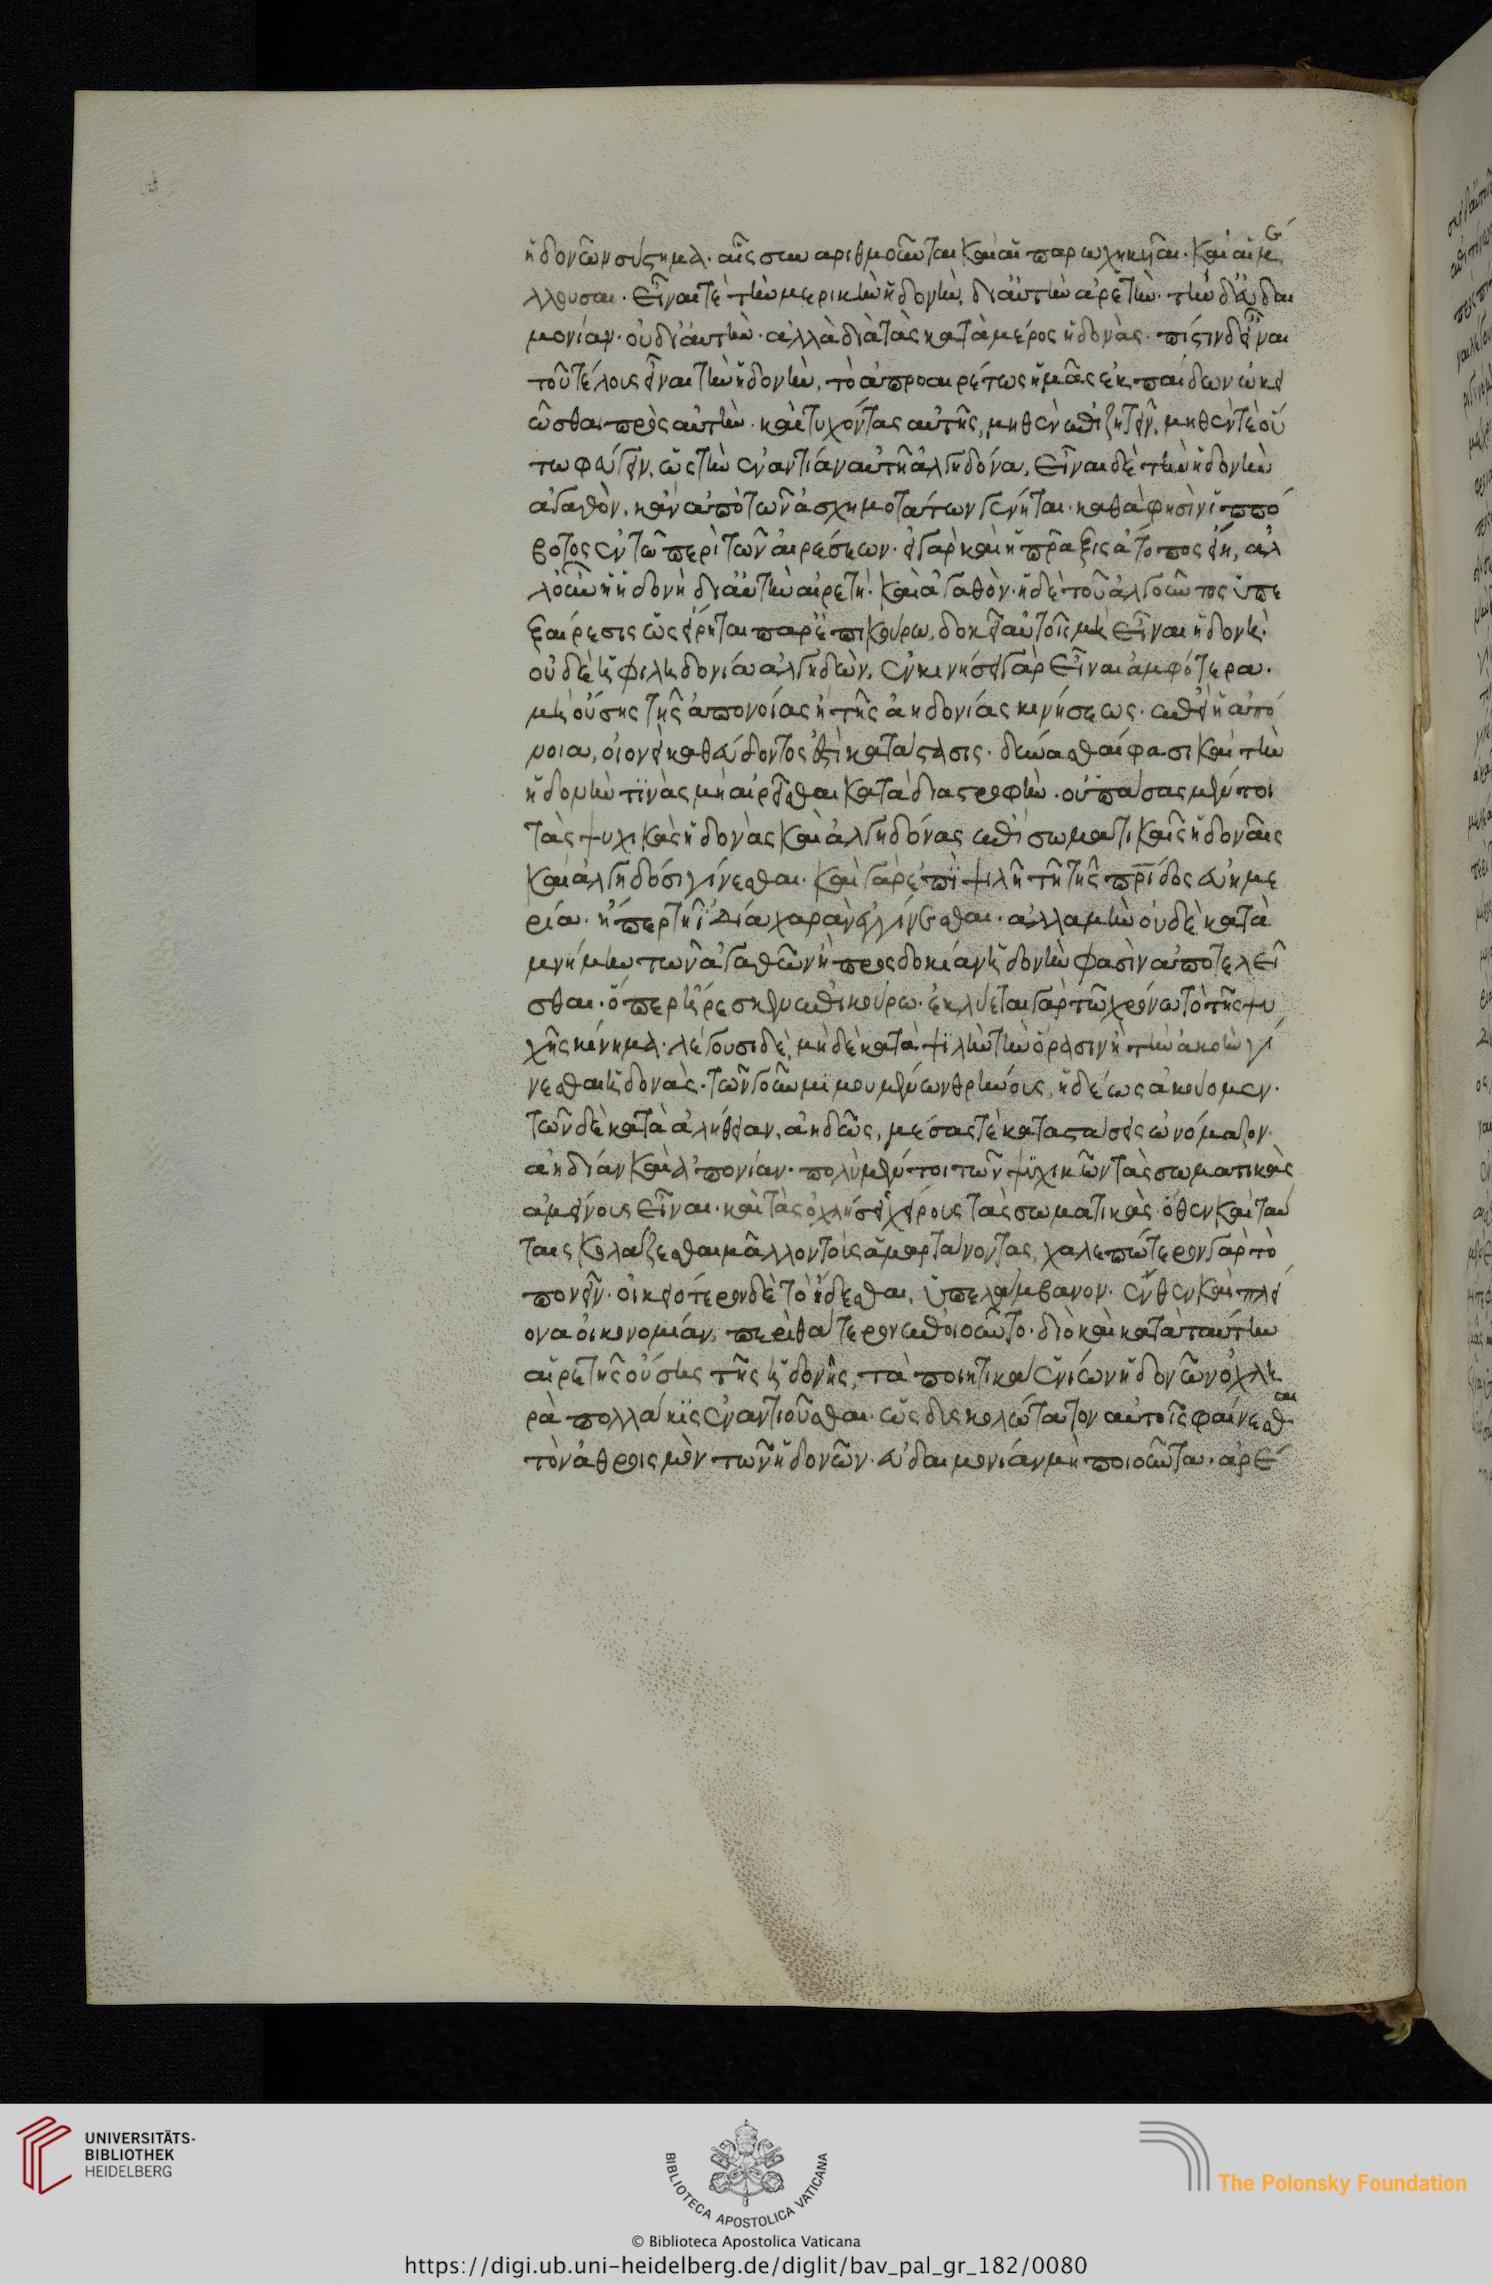 ἡδονῶν σύστημα· αἷς συναριθμοῦνται καὶ αἱ παρωχηκυῖαι· καὶ αἱ μέ
λλουσαι· εἶναί τε τὴν μερικὴν ἡδονὴν, δι' αὑτὴν αἱρετὴν· τὴν δ' εὐδαι
μονίαν· οὐ δι' αὑτὴν· ἀλλὰ διὰ τὰς κατὰ μέρος ἡδονάς· πίστιν δ' εἶναι
τοῦ τέλους εἶναι τὴν ἡδονὴν, τὸ ἀπροαιρέτως ἡμᾶς ἐκ παίδων ὠκει
ῶσθαι πρὸς αὐτὴν· καὶ τυχόντας αὐτῆς, μηθὲν ἐπιζητεῖν, μηθέν τε οὕ
τω φεύγειν, ὡς τὴν ἐναντίαν αὐτῇ ἀλγηδόνα, εἶναι δὲ τὴν ἡδονὴν
ἀγαθὸν, κἂν ἀπὸ τῶν ἀσχημοτάτων γένηται· καθά φησιν ἱππό
βοτος ἐν τῷ περὶ τῶν αἱρέσεων· εἰ γὰρ καὶ ἡ πρᾶξις ἄτοπος εἴη, ἀλ
λ' οὖν ἡ ἡδονὴ δι' αὑτὴν αἱρετὴ· καὶ ἀγαθὸν· ἡ δὲ τοῦ ἀλγοῦντος ὑπε
ξαίρεσις ὡς εἴρηται παρ' ἐπικούρω, δοκεῖ αὐτοῖς μὴ εἶναι ἡδονὴ·
οὐδὲ ἡ φιληδονία ἀλγηδών, ἐν κινήσει γὰρ εἶναι ἀμφότερα·
μὴ οὔσης τῆς ἀπονοίας ἢ τῆς ἀηδονίας κινήσεως· ἐπεὶ ἡ ἀπό
νοια, οἱονεὶ καθεύδοντός ἐστι κατάστασις· δύνασθαί φασι καὶ τὴν
ἡδονὴν τινὰς μὴ αἱρεῖσθαι κατὰ διαστροφὴν· οὐ πάσας μέντοι
τὰς ψυχικὰς ἡδονὰς καὶ ἀλγηδόνας ἐπὶ σωματικαῖς ἡδοναῖς
καὶ ἀλγηδόσι γίνεσθαι· καὶ γὰρ ἐπὶ ψιλῇ τῇ τῆς πρίδος εὐημε
ρία· ἥπερ τῇ ἰδία χαρὰν ἐγγίνεσθαι· ἀλλὰ μὴν οὐδὲ κατὰ
μνήμην τῶν ἀγαθῶν ἢ προσδοκίαν ἡδονὴν φασὶν ἀποτελεῖ
σθαι· ὅπερ ἤρεσκεν ἐπικούρω· ἐκλύεται γὰρ τῶ χρόνω τὸ τῆς ψυ
χῆς κίνημα· λέγουσι δὲ, μὴ δὲ κατὰ ψιλὴν τὴν ὅρασιν ἢ τὴν ἀκοὴν γί
νεσθαι ἡδονὰς· τῶν γοῦν μιμουμένων θρήνους, ἡδέως ἀκούομεν·
τῶν δὲ κατὰ ἀλήθειαν, ἀηδῶς, μέσας τε καταστάσεις ὠνόμαζον·
ἀηδίαν καὶ ἀπονίαν· πολὺ μέντοι τῶν ψυχικῶν τὰς σωματικὰς
ἀμείνους εἶναι· καὶ τὰς ὀχλήσεις χείρους τὰς σωματικὰς· ὅθεν καὶ ταύ
ταις κολάζεσθαι μᾶλλον τοὺς ἁμαρτάνοντας, χαλεπώτερον γὰρ τὸ
πονεῖν· οἰκειότερον δὲ τὸ ἥδεσθαι, ὑπελάμβανον· ἔνθεν καὶ πλεί
ονα οἰκονομίαν, περὶ θάτερον ἐποιοῦντο· διὸ καὶ κατὰ ταύτην
αἱρετῆς οὔσης τῆς ἡδονῆς, τὰ ποιητικὰ ἐνίων ἡδονῶν ὀχλη
ρὰ πολλάκις ἐναντιοῦσθαι· ὡς δυσκολώτατον αὐτοῖς φαίνεσθαι
τὸν ἀθροισμὸν τῶν ἡδονῶν· εὐδαιμονίαν μὴ ποιοῦντα· ἀρέ
UNIVERSITÄTS-
BIBLIOTHEK
HEIDELBERG
BIBLIOTECA APOSTOLICA VATICANA
The Polonsky Foundation
© Biblioteca Apostolica Vaticana
https://digi.ub.uni-heidelberg.de/diglit/bav_pal_gr_182/0080